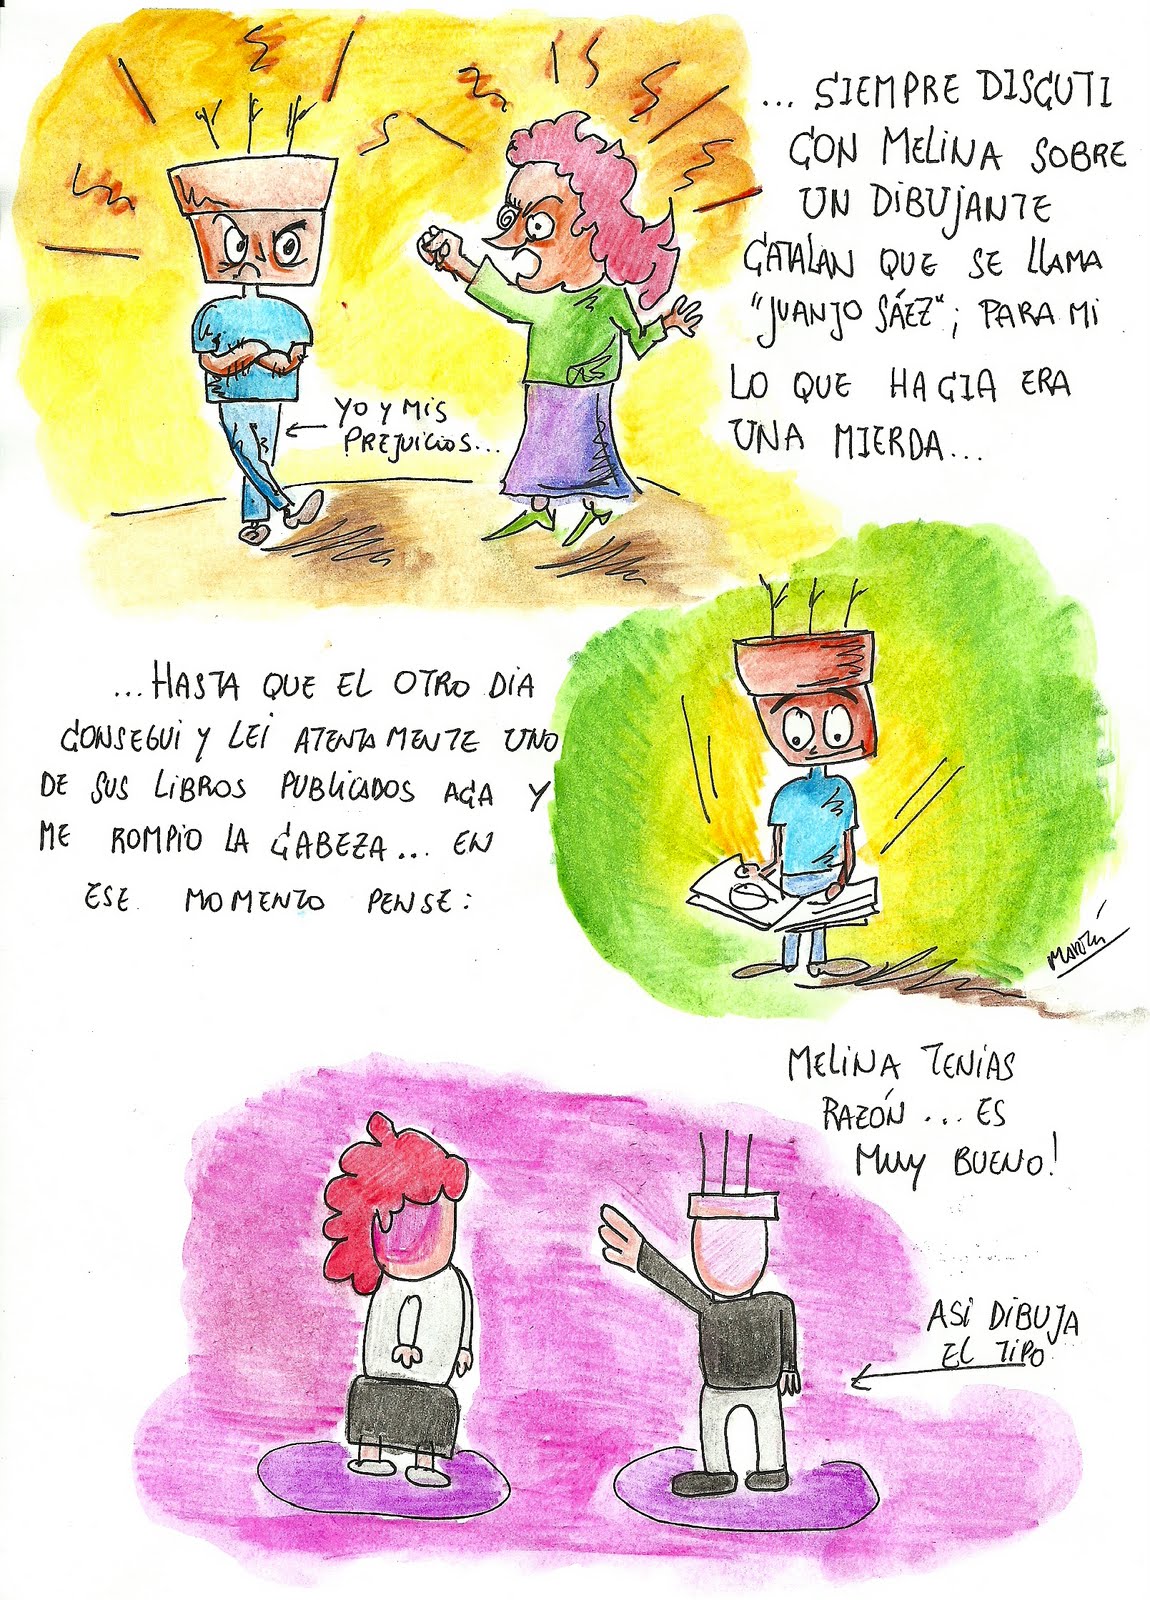 ... SIEMPRE DISCUTI
CON MELINA SOBRE
UN DIBUJANTE
CATALAN QUE SE LLAMA
"JUANJO SÁEZ"; PARA MI
LO QUE HACIA ERA
UNA MIERDA...
YO Y MIS
PREJUICIOS...
...HASTA QUE EL OTRO DIA
CONSEGUI Y LEI ATENTAMENTE UNO
DE SUS LIBROS PUBLICADOS ACA Y
ME ROMPIO LA CABEZA... EN
ESE MOMENTO PENSE:
MELINA TENIAS
RAZÓN... ES
MUY BUENO!
ASI DIBUJA
EL TIPO